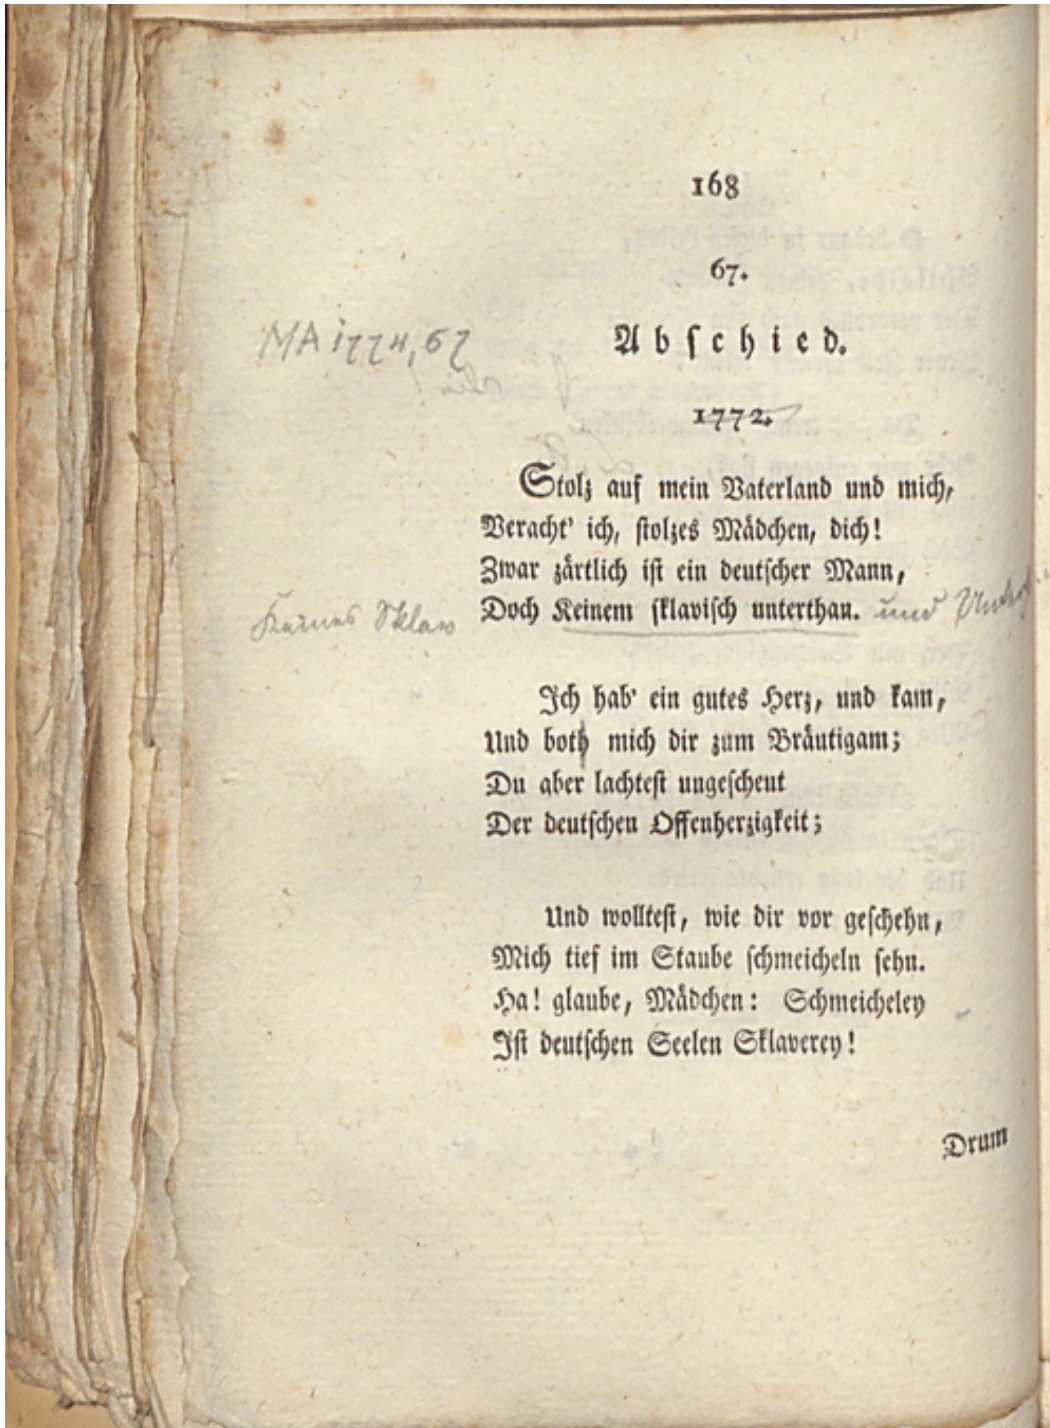 168
67.
MA 1774, 67
Abschied.
1772.
Stolz auf mein Vaterland und mich,
Veracht' ich, stolzes Mädchen, dich!
Zwar zärtlich ist ein deutscher Mann,
Keines Sklav Doch Keinem sklavisch unterthan. und
Ich hab' ein gutes Herz, und kam,
Und both mich dir zum Bräutigam;
Du aber lachtest ungescheut
Der deutschen Offenherzigkeit;
Und wolltest, wie dir vor geschehn,
Mich tief im Staube schmeicheln sehn.
Ha! glaube, Mädchen: Schmeicheley
Ist deutschen Seelen Sklaverey!
Drum